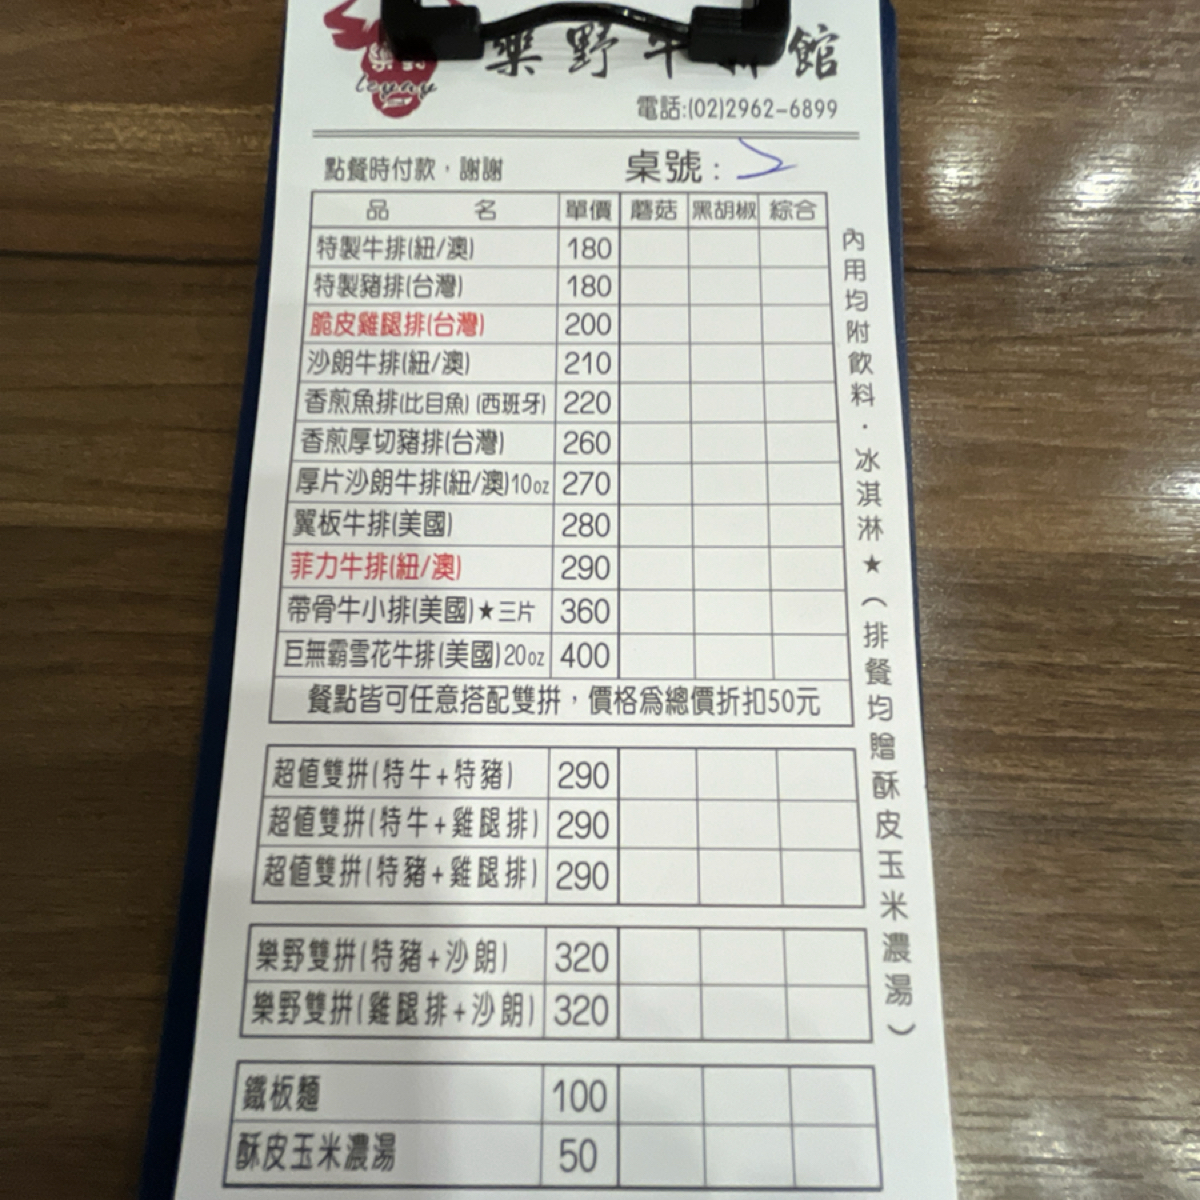 樂野牛排館
leyay
電話:(02)2962-6899
點餐時付款，謝謝
桌號：
品 名 單價 蘑菇 黑胡椒 綜合
特製牛排(紐/澳) 180
特製豬排(台灣) 180
脆皮雞腿排(台灣) 200
沙朗牛排(紐/澳) 210
香煎魚排(比目魚)(西班牙) 220
香煎厚切豬排(台灣) 260
厚片沙朗牛排(紐/澳)10oz 270
翼板牛排(美國) 280
菲力牛排(紐/澳) 290
帶骨牛小排(美國)★三片 360
巨無霸雪花牛排(美國)20oz 400
餐點皆可任意搭配雙拼，價格為總價折扣50元
超值雙拼(特牛+特豬) 290
超值雙拼(特牛+雞腿排) 290
超值雙拼(特豬+雞腿排) 290
樂野雙拼(特豬+沙朗) 320
樂野雙拼(雞腿排+沙朗) 320
鐵板麵 100
酥皮玉米濃湯 50
內用均附飲料．冰淇淋★(排餐均贈酥皮玉米濃湯)